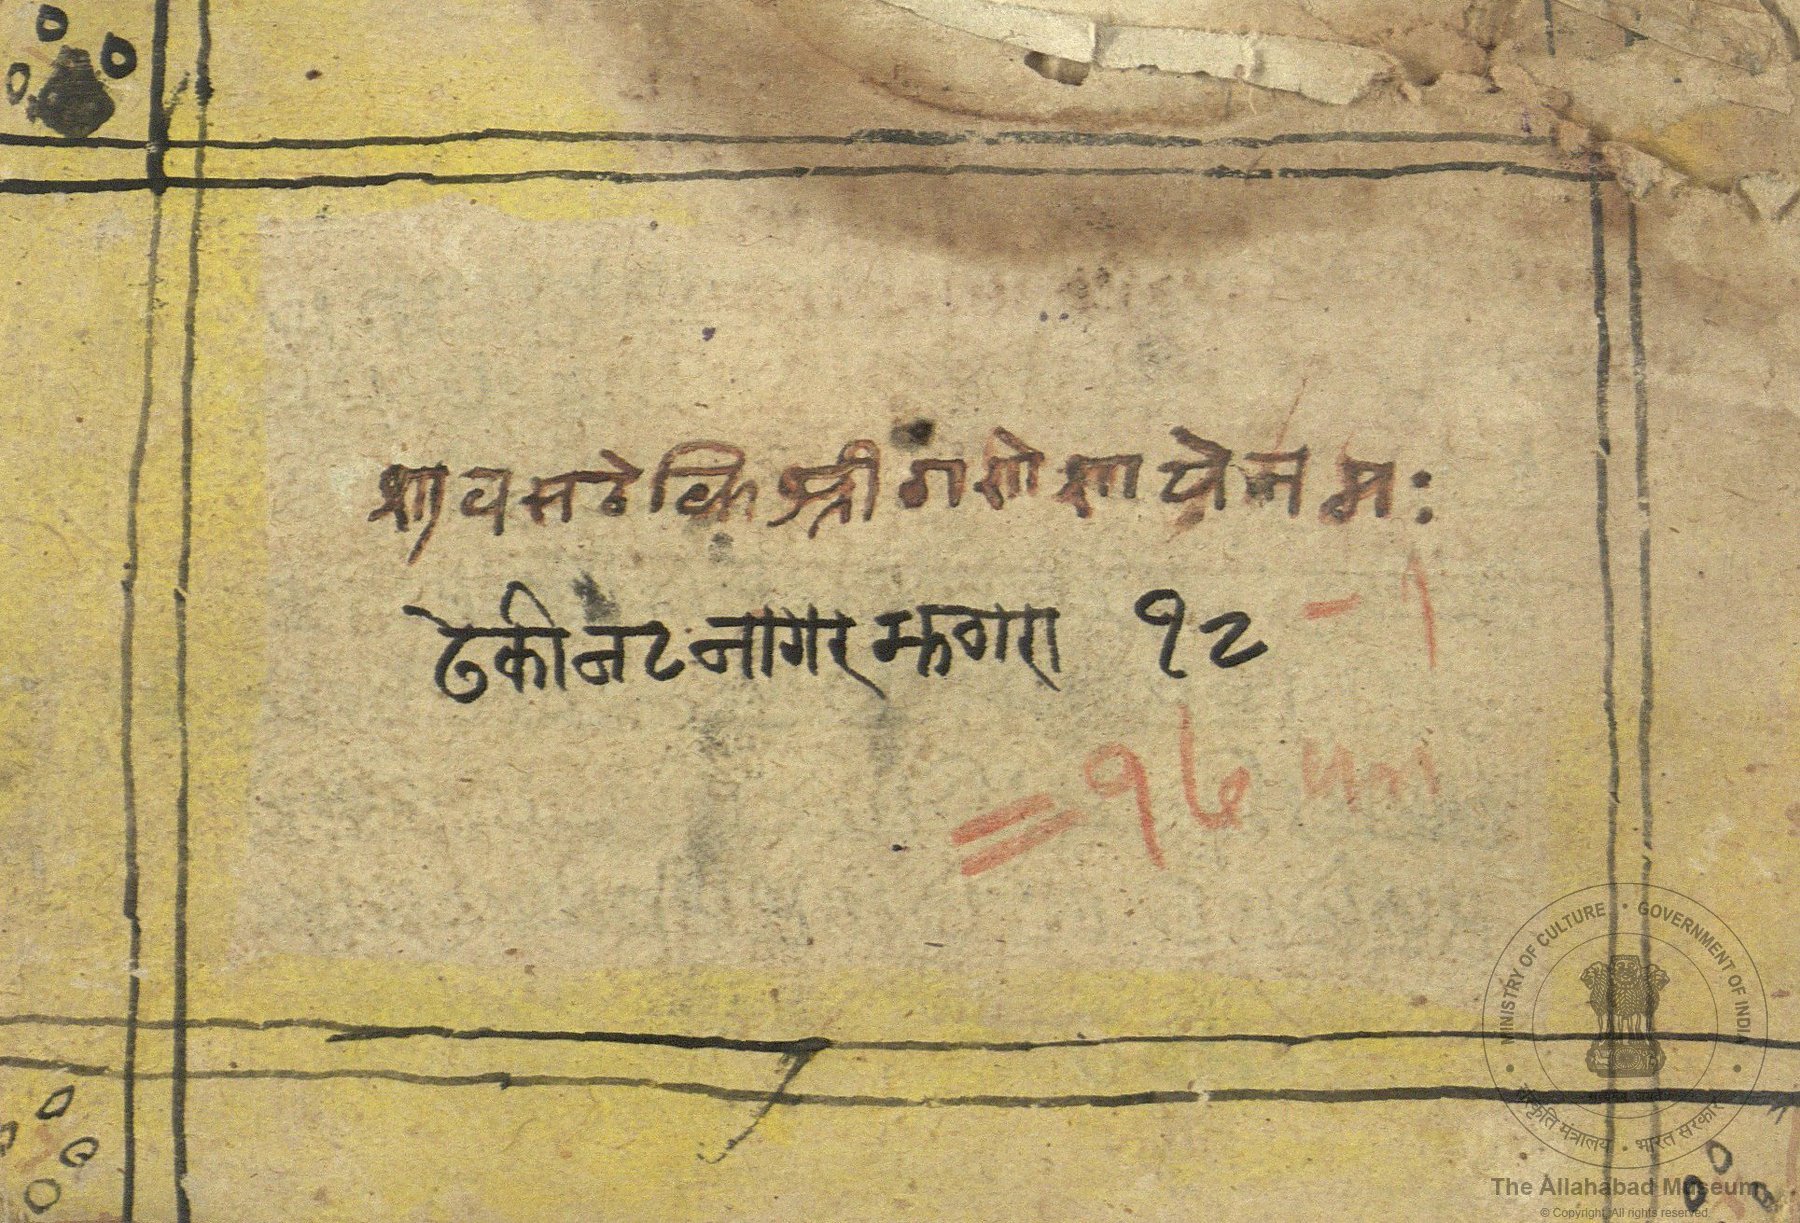 श्री गणेशायेनमः
ढेकी नट नागर झगरा १२ - १
= १७ पत्र
MINISTRY OF CULTURE • GOVERNMENT OF INDIA
संस्कृति मंत्रालय • भारत सरकार
The Allahabad Museum
© Copyright. All rights reserved.